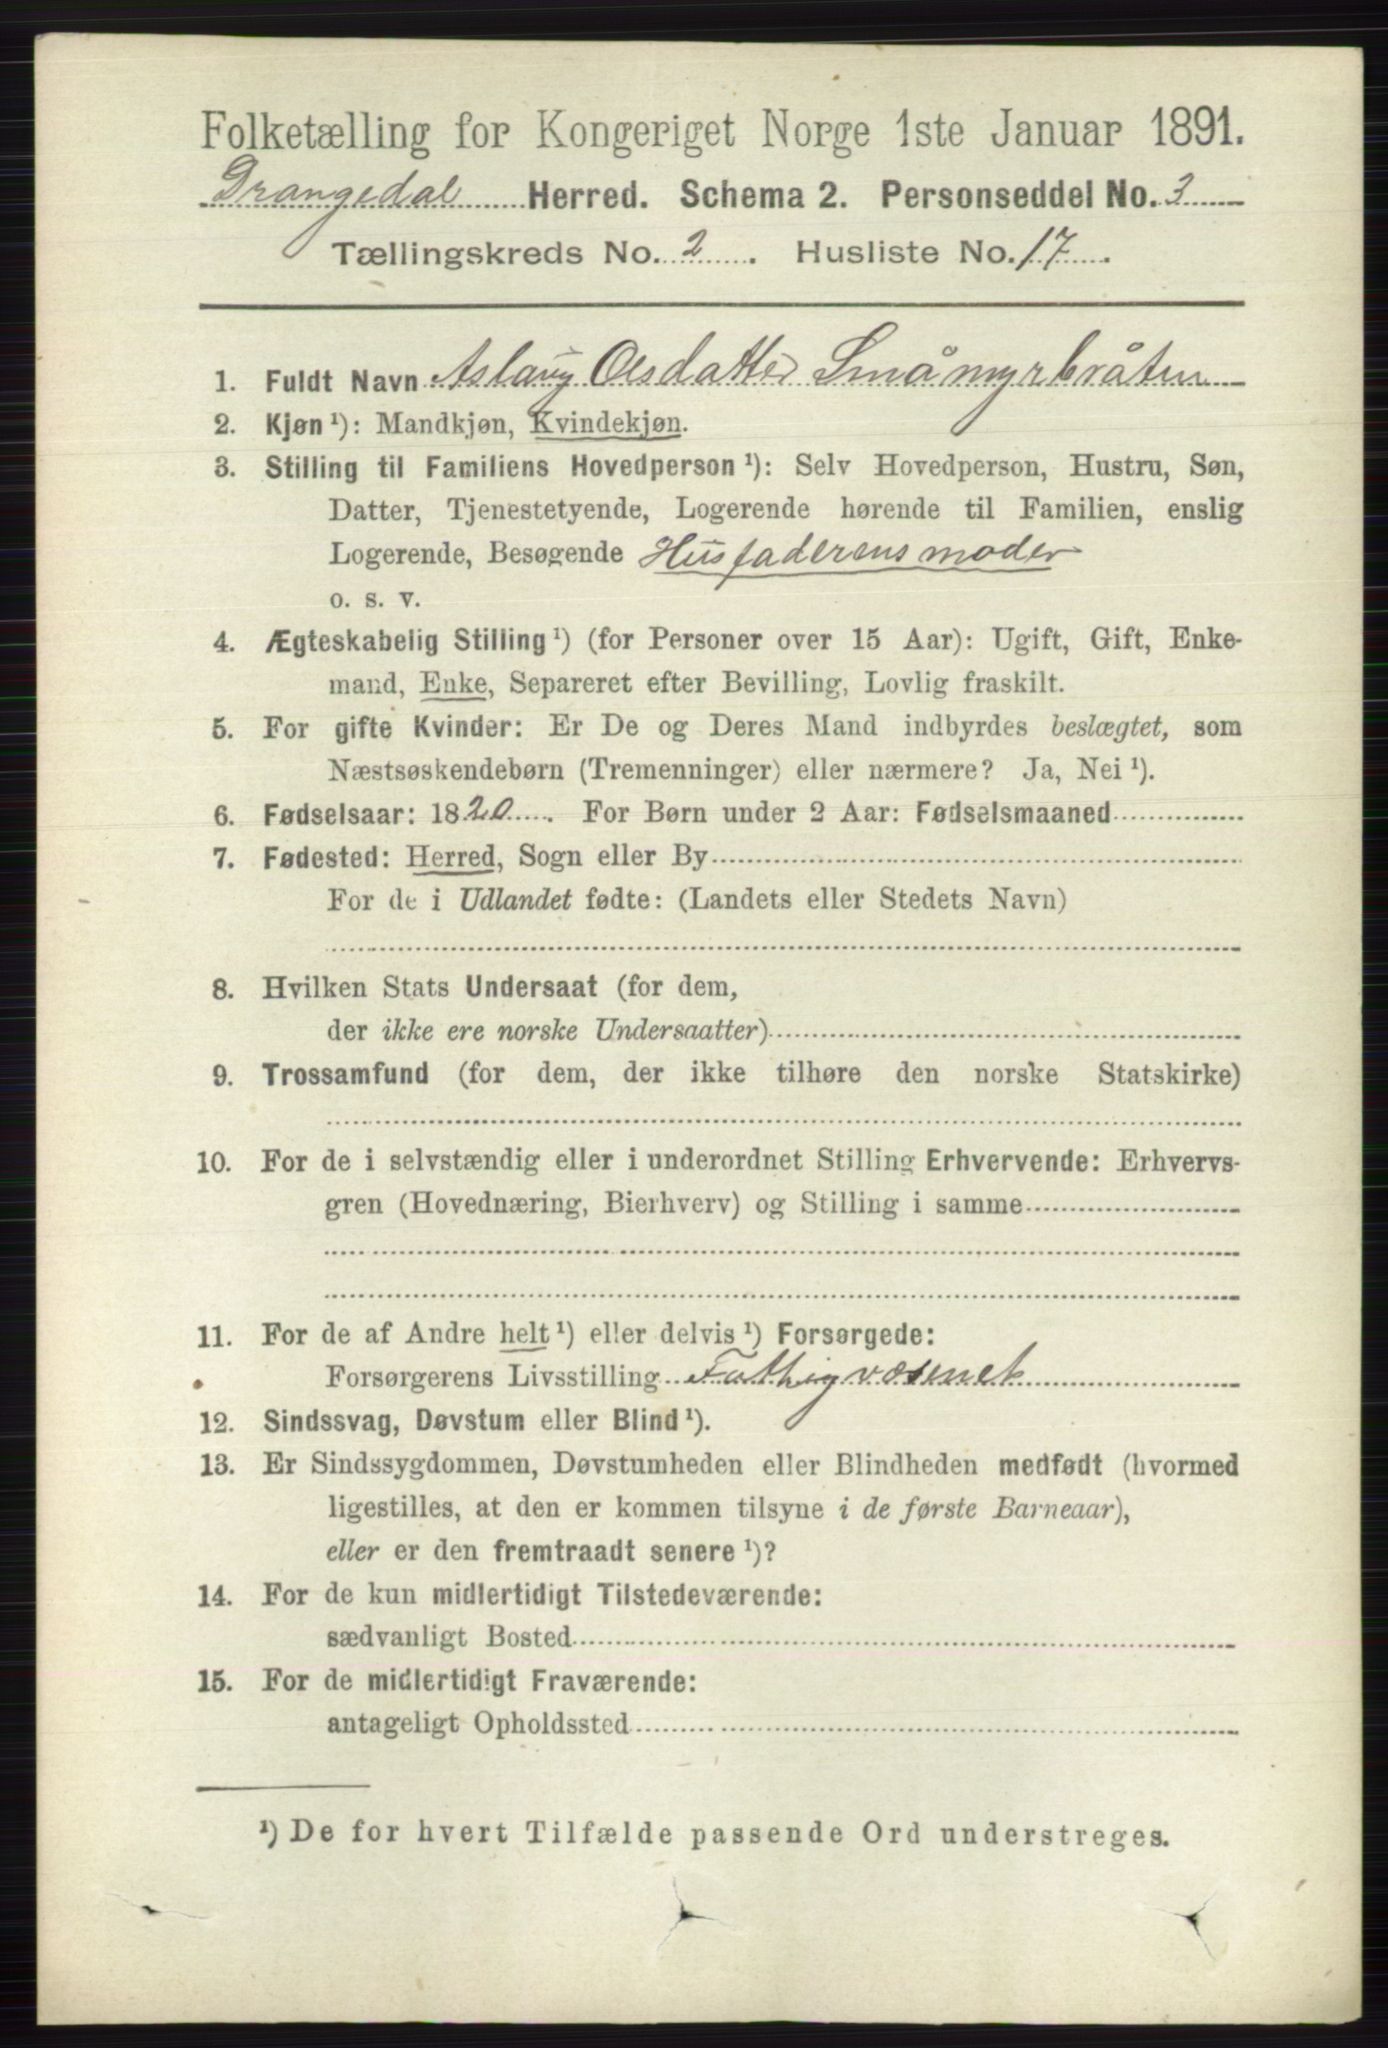 Folketælling for Kongeriget Norge 1ste Januar 1891.
Drangedal Herred. Schema 2. Personseddel No. 3
Tællingskreds No. 2. Husliste No. 17.
1. Fuldt Navn Aslaug Olsdatter Småmyrbråten
2. Kjøn ¹): Mandkjøn, Kvindekjøn.
3. Stilling til Familiens Hovedperson ¹): Selv Hovedperson, Hustru, Søn,
Datter, Tjenestetyende, Logerende hørende til Familien, enslig
Logerende, Besøgende Husfaderens moder
o. s. v.
4. Ægteskabelig Stilling ¹) (for Personer over 15 Aar): Ugift, Gift, Enke-
mand, Enke, Separeret efter Bevilling, Lovlig fraskilt.
5. For gifte Kvinder: Er De og Deres Mand indbyrdes beslægtet, som
Næstsøskendebørn (Tremenninger) eller nærmere? Ja, Nei ¹).
6. Fødselsaar: 1820. For Børn under 2 Aar: Fødselsmaaned
7. Fødested: Herred, Sogn eller By
For de i Udlandet fødte: (Landets eller Stedets Navn)
8. Hvilken Stats Undersaat (for dem,
der ikke ere norske Undersaatter)
9. Trossamfund (for dem, der ikke tilhøre den norske Statskirke)
10. For de i selvstændig eller i underordnet Stilling Erhvervende: Erhvervs-
gren (Hovednæring, Bierhverv) og Stilling i samme
11. For de af Andre helt ¹) eller delvis ¹) Forsørgede:
Forsørgerens Livsstilling Fatthigvæsenet
12. Sindssvag, Døvstum eller Blind ¹).
13. Er Sindssygdommen, Døvstumheden eller Blindheden medfødt (hvormed
ligestilles, at den er kommen tilsyne i de første Barneaar),
eller er den fremtraadt senere ¹)?
14. For de kun midlertidigt Tilstedeværende:
sædvanligt Bosted
15. For de midlertidigt Fraværende:
antageligt Opholdssted
¹) De for hvert Tilfælde passende Ord understreges.